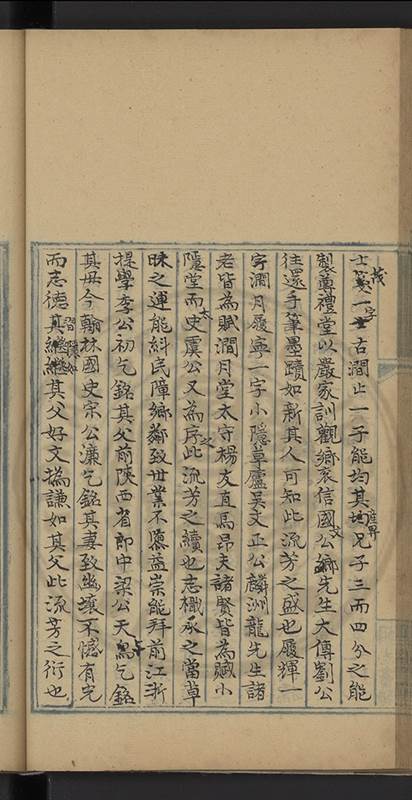 士箕一世古澗止一子能均其兄子三而四分之能
製黃禮堂以嚴家訓觀鄉哀信國公鄉先生大傳劉公
往還手筆墨蹟如新其人可知此流芳之盛也履輝一
字澗月履寧一字小隱草廬吳文正公麟洲龍先生諸
老皆為賦澗月堂太守楊友直馬昂夫諸賢皆為賦小
隱堂而太史虞公又為序之此流芳之續也志檝承之當草
昧之運能糾民障鄉鄰致世業不隳益崇能拜前江浙
提學李公初乞銘其父前陝西省郎中梁公天乞銘
其毋今翰林國史宋公濂乞銘其妻致幽壤不憾有完
而志德習隱如其父好文撝謙如其父此流芳之衍也